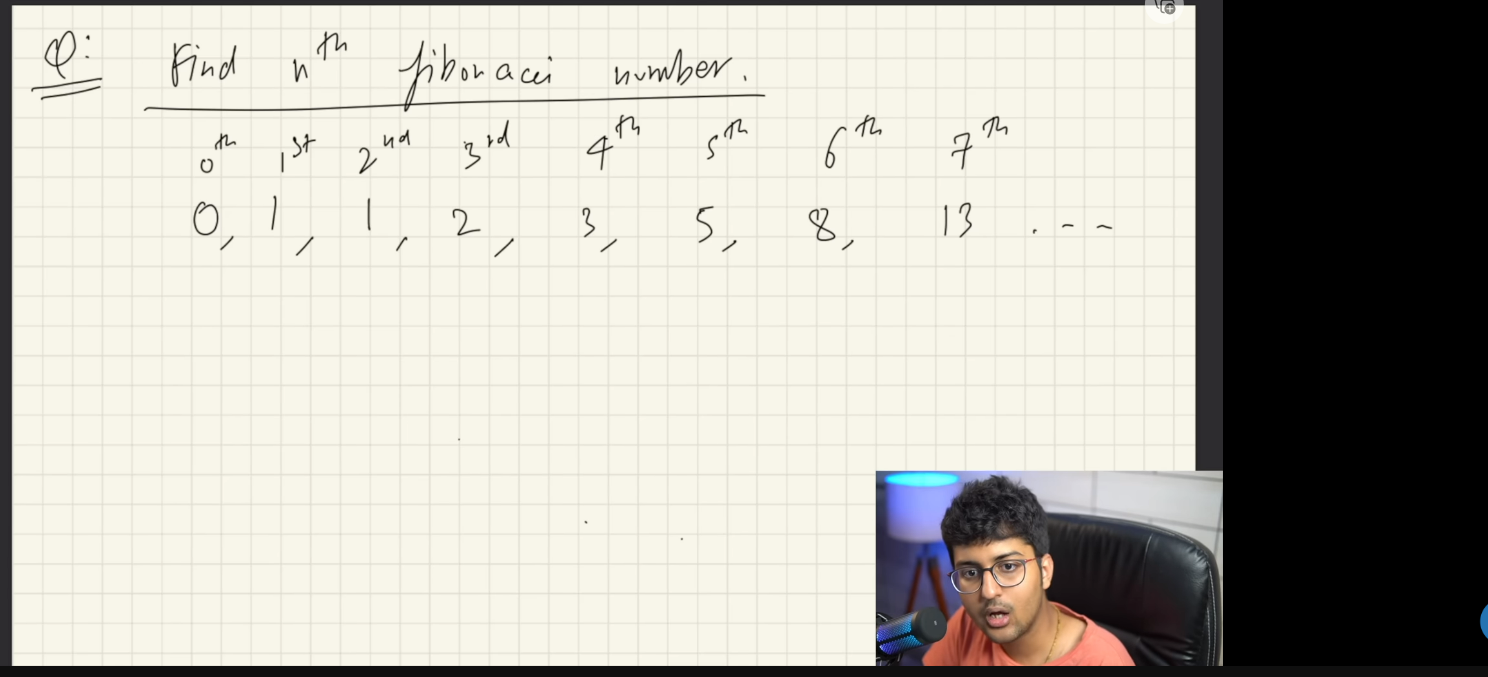 Q: Find nth fibonacci number.
0th 1st 2nd 3rd 4th 5th 6th 7th
0, 1, 1, 2, 3, 5, 8, 13 . - -